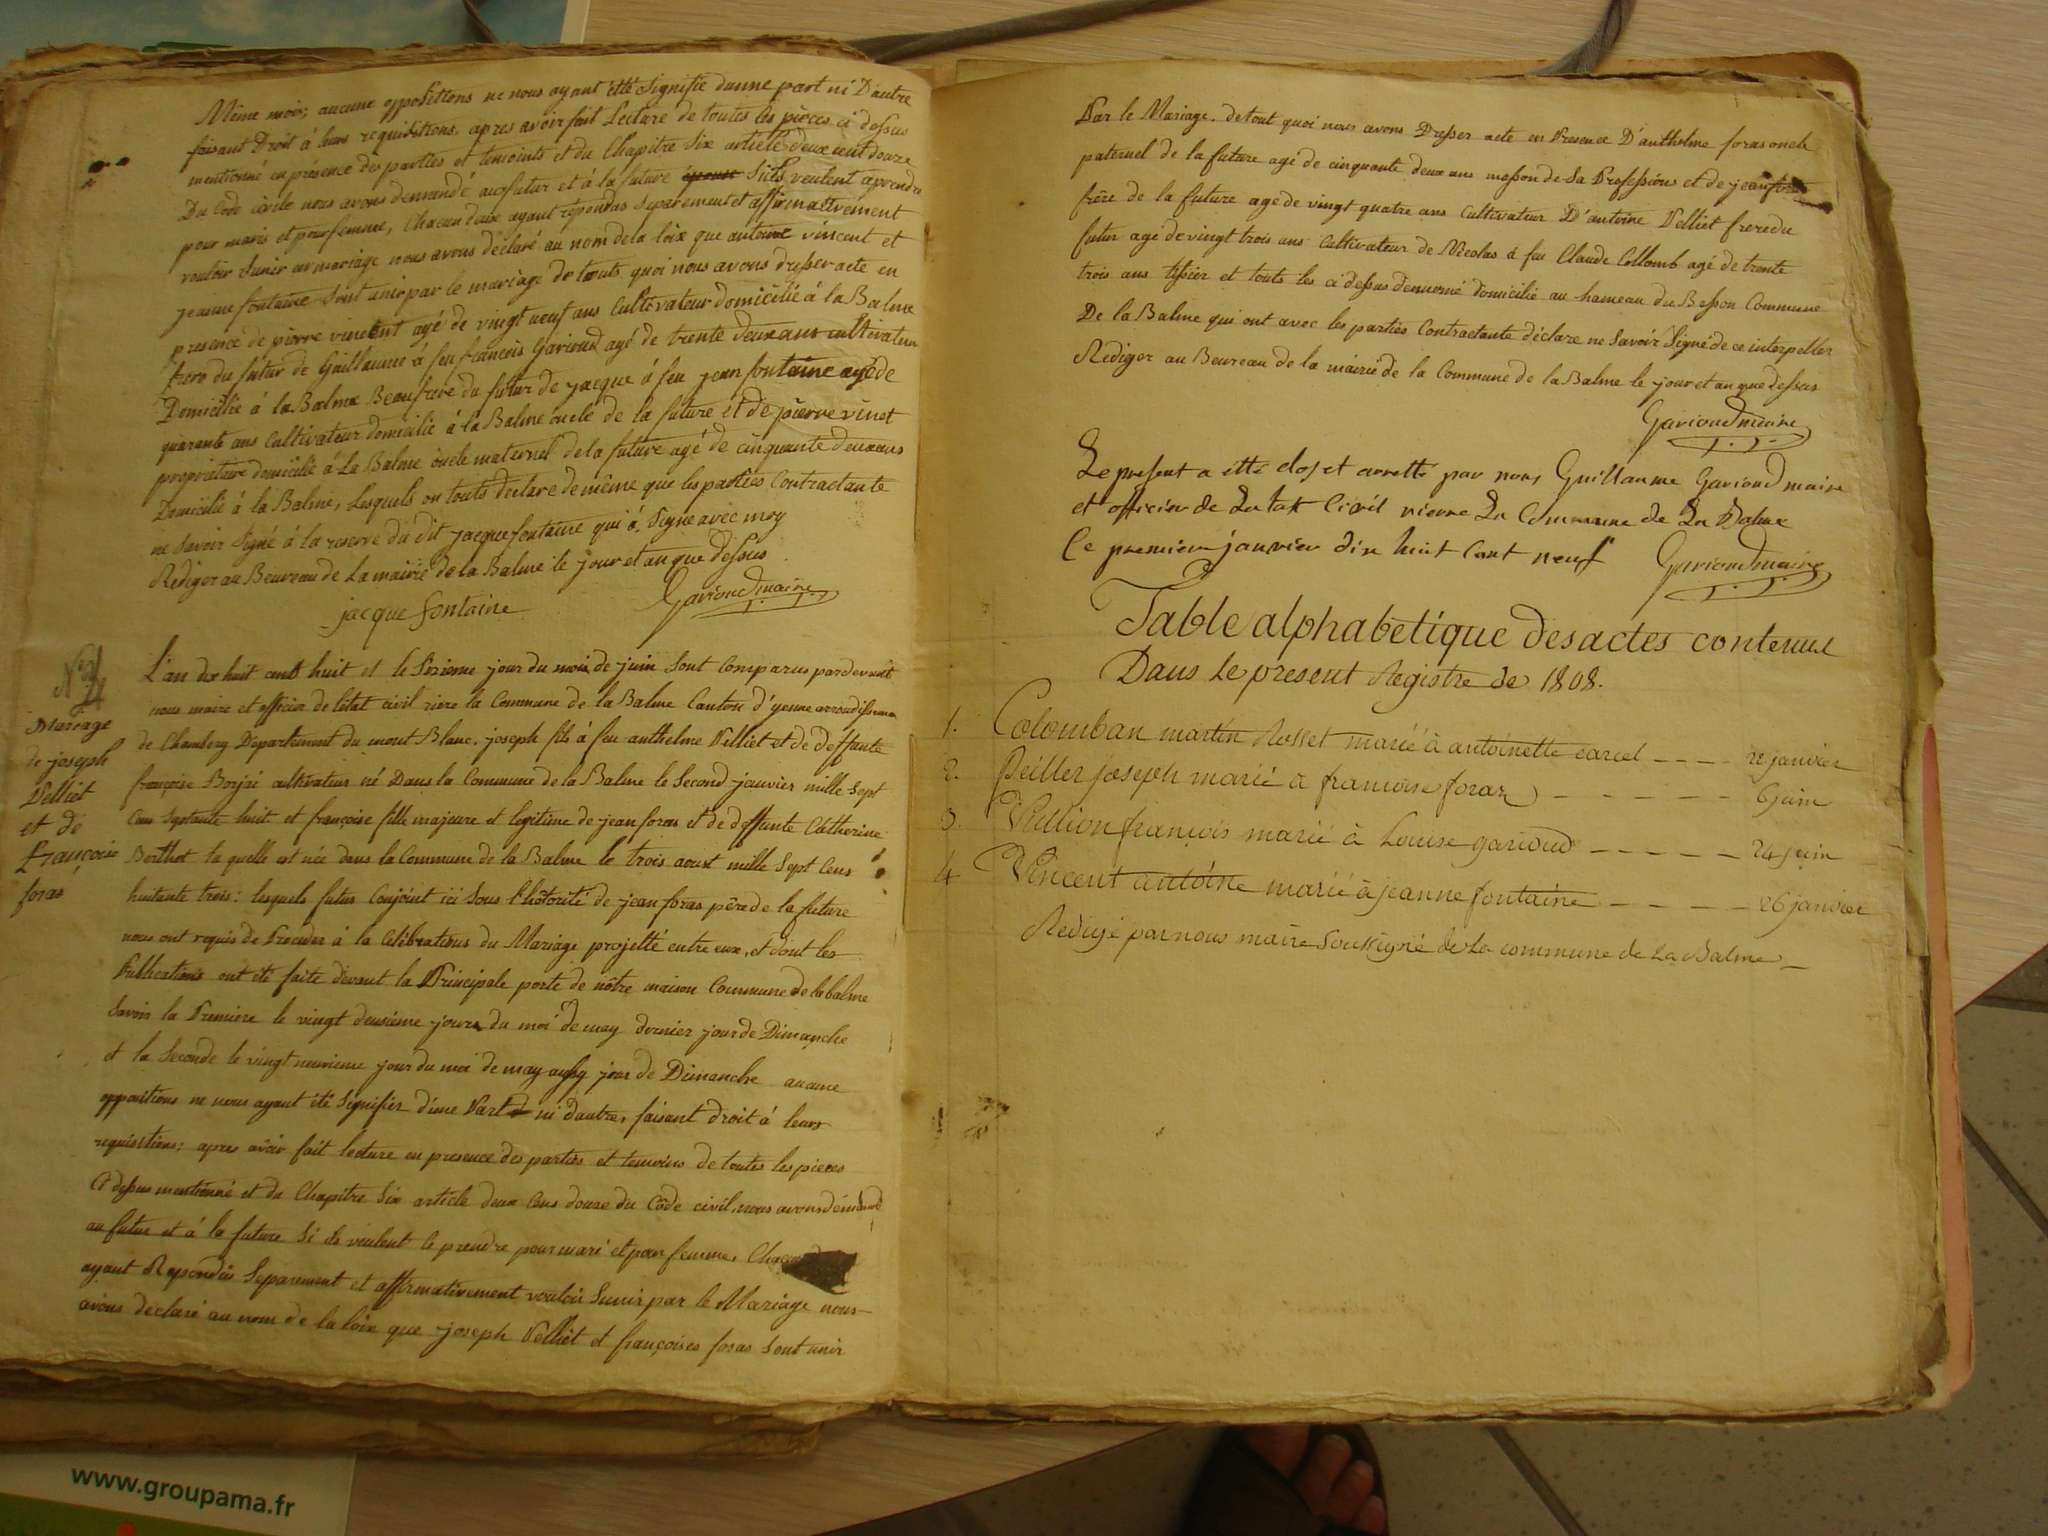 Même mois; aucune oppositions ne nous ayant étté Signifié dunne part ni D'autre
faisant Droit à leurs requisitions, apres avoir fait Lecture de toutes les pièces ci dessus
mentionné en présence des parties et temoints et du Chapitre Six article deux cent douze
Du Code civile nous avons demandé au futur et à la future Sils veulent a prendre
pour maris et pour femme, Chacun deux ayant repondus Separement et affirmativement
vouloir Sunir au mariage nous avons déclaré au nom de la loix que antoine vincent et
jeanne fontaine Sont unir par le mariage de touts quoi nous avons dresser acte en
presence de pierre vincent agé de vingt neuf ans Cultivateur domicilié à la Balme
frère du futur de Guillaume à feu françois Garioud agé de trente deux ans cultivateur
Domicilié à la Balme Beaufrere du futur de jacque à feu jean fontaine agé de
quarante ans Cultivateur domicilié à la Balme oncle de la future et de pierre vinet
propriature domicilié à La Balme oncle maternel de la future agé de cinquante deux ans
Domicilié à la Balme, Lesquels on touts declare de même que les parties Contractante
ne Savoir Signé à la reserve du dit jacque fontaine qui à Signe avec moy
Rediger au Beureau de La mairie de la Balme le jour et an que dessus
Garioud maire
jacque fontaine
Nº 4
Mariage
de joseph
Velliet
et de
françoise
foras
L'an dix huit cents huit et le Sizieme jour du mois de juin Sont Comparus pardevant
nous maire et officier de létat civil riere la Commune de la Balme Canton d'yenne arrondissemen
de Chambery Departement du mont Blanc. joseph fils à feu anthelme Velliet et de deffunte
françoise Borjai cultivateur né Dans la Commune de la Balme le Second janvier mille Sept
Cens Septante huit et françoise fille majeure et legitime de jean foras et de deffunte Catherine
Berthet la quelle est née dans la Commune de la Balme le trois aoust mille Sept Cens
huitante trois: lesquels futurs Conjoint ici Sous l'hotorité de jean foras père de la future
nous ont requis de Proceder à la Célébrations du Mariage projetté entre eux, et dont les
Publications ont été faite devant la Principale porte de nôtre maison Commune de la balme
Savoir la Premiere le vingt deusième jours du moi de may dernier jour de Dimanche
et la Seconde le vingt neuvieme jour du moi de may aussy jour de Dimanche aucune
oppositions ne nous ayant été Signifier d'une Part ni dautre, faisant droit à leurs
requisitions: apres avoir fait lecture en presence des parties et temoins de toutes les pieces
Ci dessus mentionné et du Chapitre Six article deux Cens douze du Côde civil, nous avons démandé
au futur et à la future Si ils veulent Se prendre pour mari et pour femme, Chacun
ayant Repondus Separement et affirmativement vouloir Sunir par le Mariage nous
avons declaré au nom de la loix que joseph Velliet et françoises foras Sont unir
Par le Mariage. de tout quoi nous avons Dresser acte en Presence D'anthelme foras oncle
paternel de la future agé de cinquante deux ans masson de Sa Profession et de jean foras
frère de la future age de vingt quatre ans Cultivateur D'antoine Velliet frere du
futur agé de vingt trois ans Cultivateur de Nicolas à feu Claude Collomb agé de trente
trois ans tissier et touts les ci dessus denomé domicilié au hameau du Besson Commune
De la Balme qui ont avec les parties Contractante déclare ne Savoir Signé de ce interpeller
Rediger au Beureau de la mairie de la Commune de la Balme le jour et an que dessus
Garioud maire
Le present a étté clos et arretté par nous Guillaume Garioud maire
et officier de Letat Civil rierre La Commune de La Balme
Ce premier janvier dix huit Cent neuf
Garioud maire
Table alphabetique des actes contenus
Dans Le present Registre de 1808.
1. Colomban martin Rosset marié à antoinette carcel - - - - 22 janvier
2. Peillet joseph marié à francoise foraz - - - - - - 6 juin
3. Vullion françois marié à Louise garioud - - - - - 24 juin
4 Vincent antoine marié à jeanne fontaine - - - - - 26 janvier
Redigé par nous maire Soussigné de La commune de La Balme
www.groupama.fr